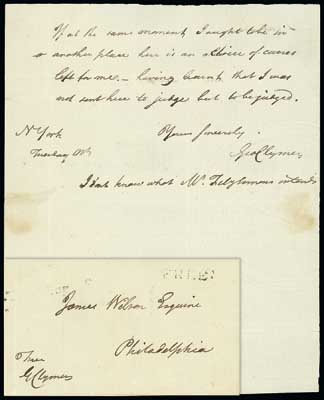 If at the same moment I ought to be in
another place here is an of
left for me. – having learnt that I was
not sent here to judge but to be judged.
N York
Tuesday
Yours sincerely
Geo Clymer
I don't know what Mr. intends
FREE
James Wilson Esquire
Philadelphia
Free
G Clymer